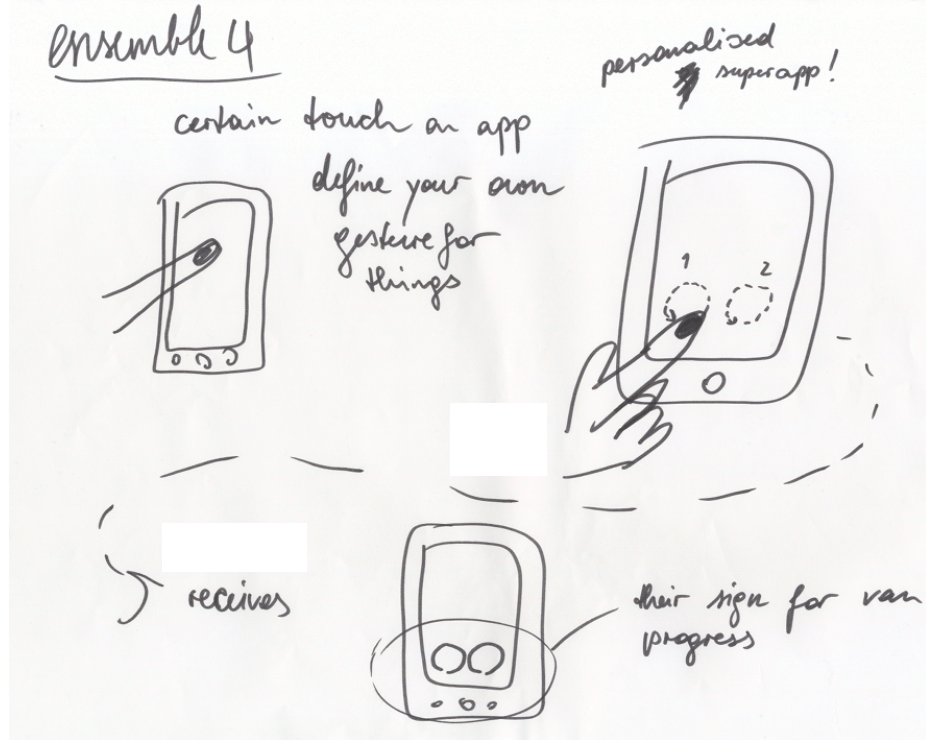 ensemble 4
personalised
superapp!
certain touch on app
define your own
gesture for
things
1
2
receives
their sign for van
progress